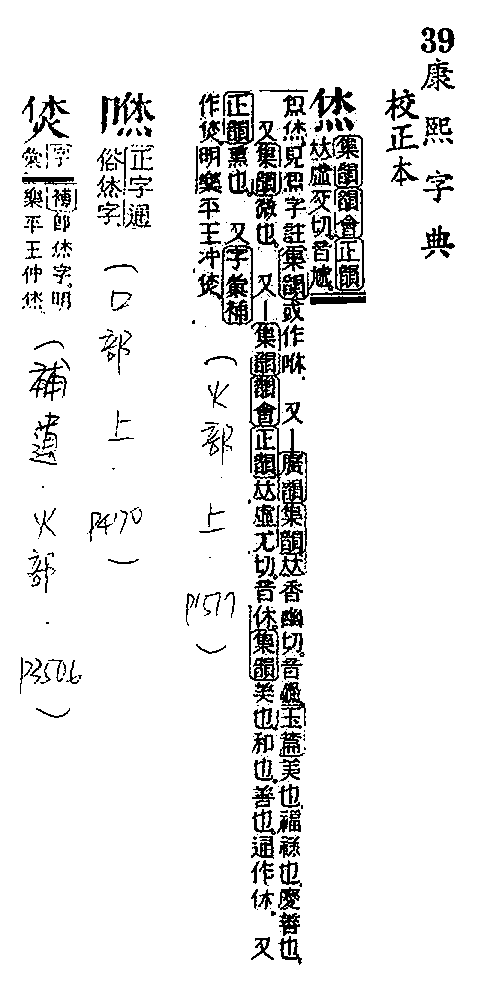 39
康熙字典
校正本
烋
集韻韻會正韻
𠀤虛交切音虓
炰烋見炰字註集韻或作咻 又丨廣韻集韻𠀤香幽切音飍玉篇美也福祿也慶善也
又集韻微也 又丨集韻韻會正韻𠀤虛尤切音休集韻美也和也善也通作休 又
正韻熏也 又字彙補
作㶭明樂平王冲㶭
(火部上.P1577)
正字通
俗烋字
(口部上.P4170)
㶭
字彙
補郎烋字明
樂平王仲㶭
(補遺.火部.P3506)